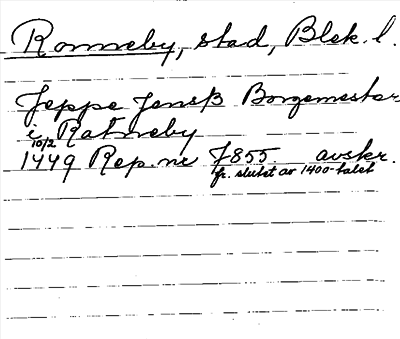 Ronneby, stad, Blek. l.
Jeppe Jensß Borgemester
i Rotneby
10/2
1449 Rep. nr 7855 avskr.
fr. slutet av 1400-talet